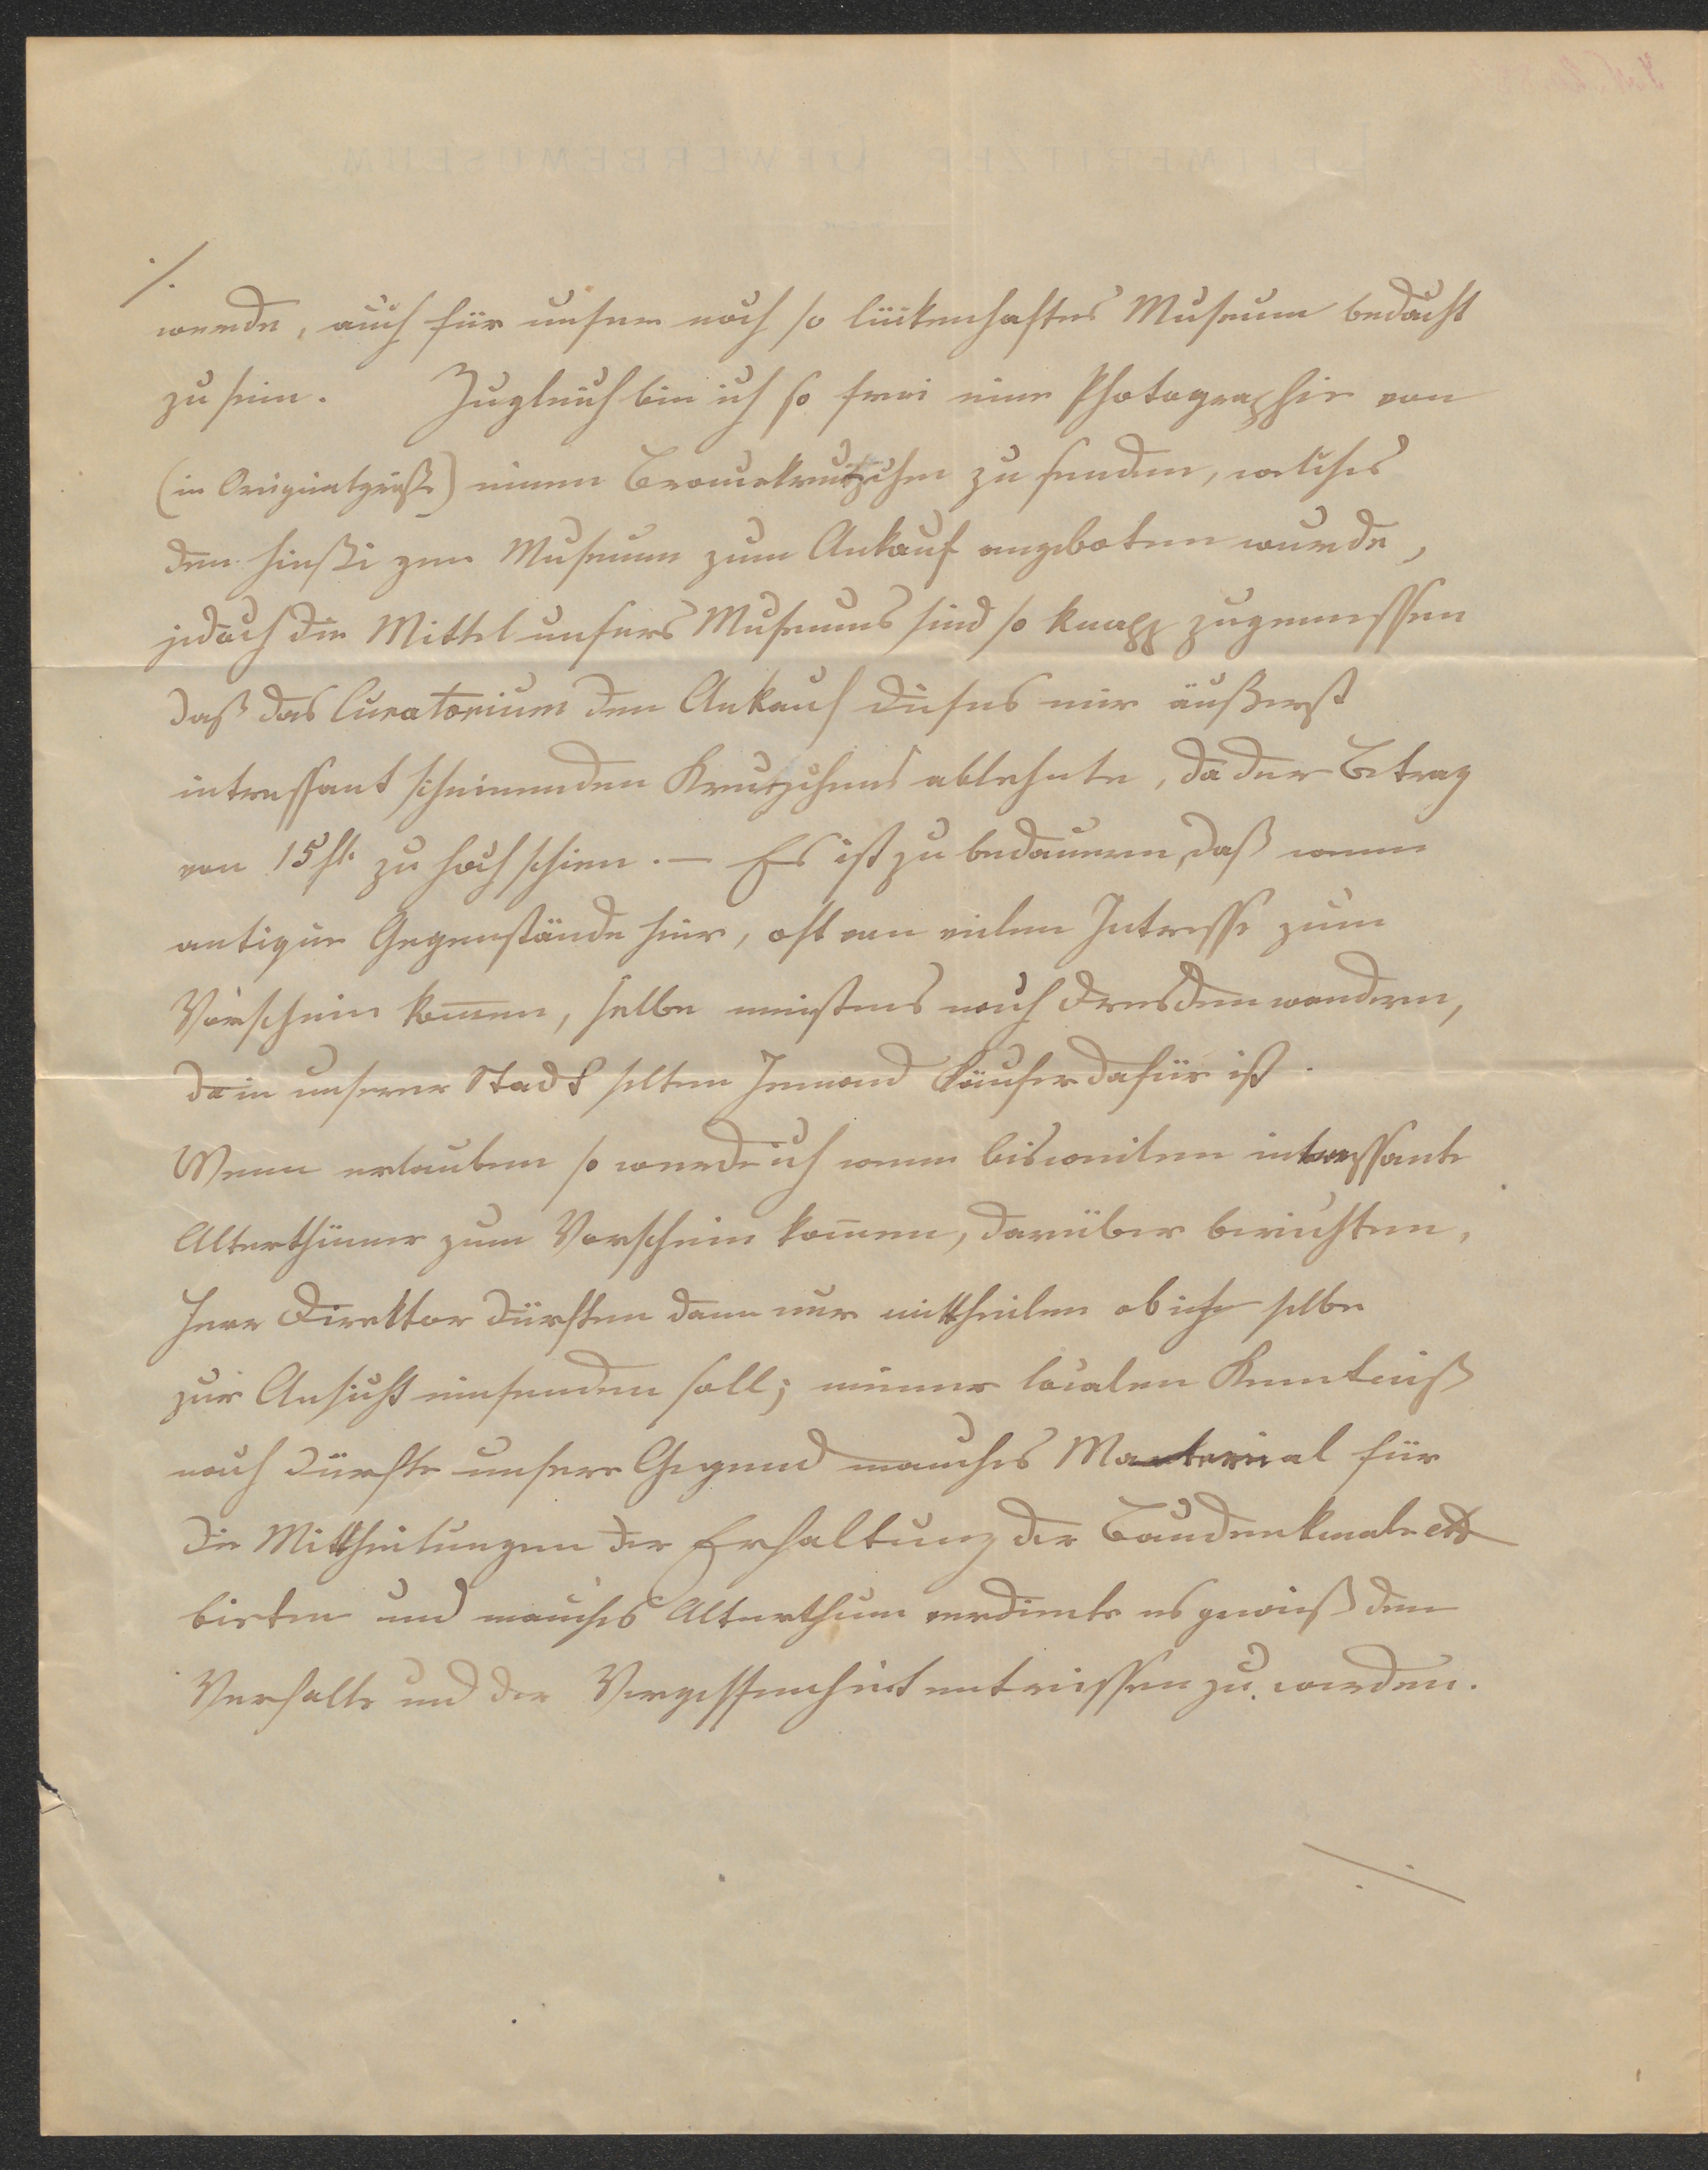 ./.
werde, auch für unser noch so lückenhaftes Museum bedacht
zu sein. Zugleich bin ich so frei eine Photographie von
(in Originalgröße) einem Broncekreuzchen zu senden, welches
dem hießigen Museum zum Ankauf angeboten wurde,
jedoch die Mittel unsers Museums sind so knapp zugemessen
daß das Curatorium den Ankauf dieses mir äußerst
intressant scheinenden Kreuzchens ablehnte, da der Betrag
von 15 fl. zu hoch schien. — Es ist zu bedauern, daß wenn
antique Gegenstände hier, oft von vielem Intresse zum
Vorschein kom̅en, selbe meistens nach Dresden wandern,
da in unserer Stadt selten Jemand Käufer dafür ist.
Wenn erlauben so werde ich wenn bisweilen intressante
Alterthümer zum Vorschein kom̅en, darüber berichten,
Herr Direktor dürften dann nur mittheilen ob ich selbe
zur Ansicht einsenden soll; meiner localen Kenntniß
nach dürfte unsere Gegend manches Material für
die Mittheilungen der Erhaltung der Baudenkmale ett
bieten und manches Alterthum verdiente es gewiß dem
Verfalle und der Vergessenheit entrissen zu werden.
./.
LEITMERITZER GEWERBEMUSEUM